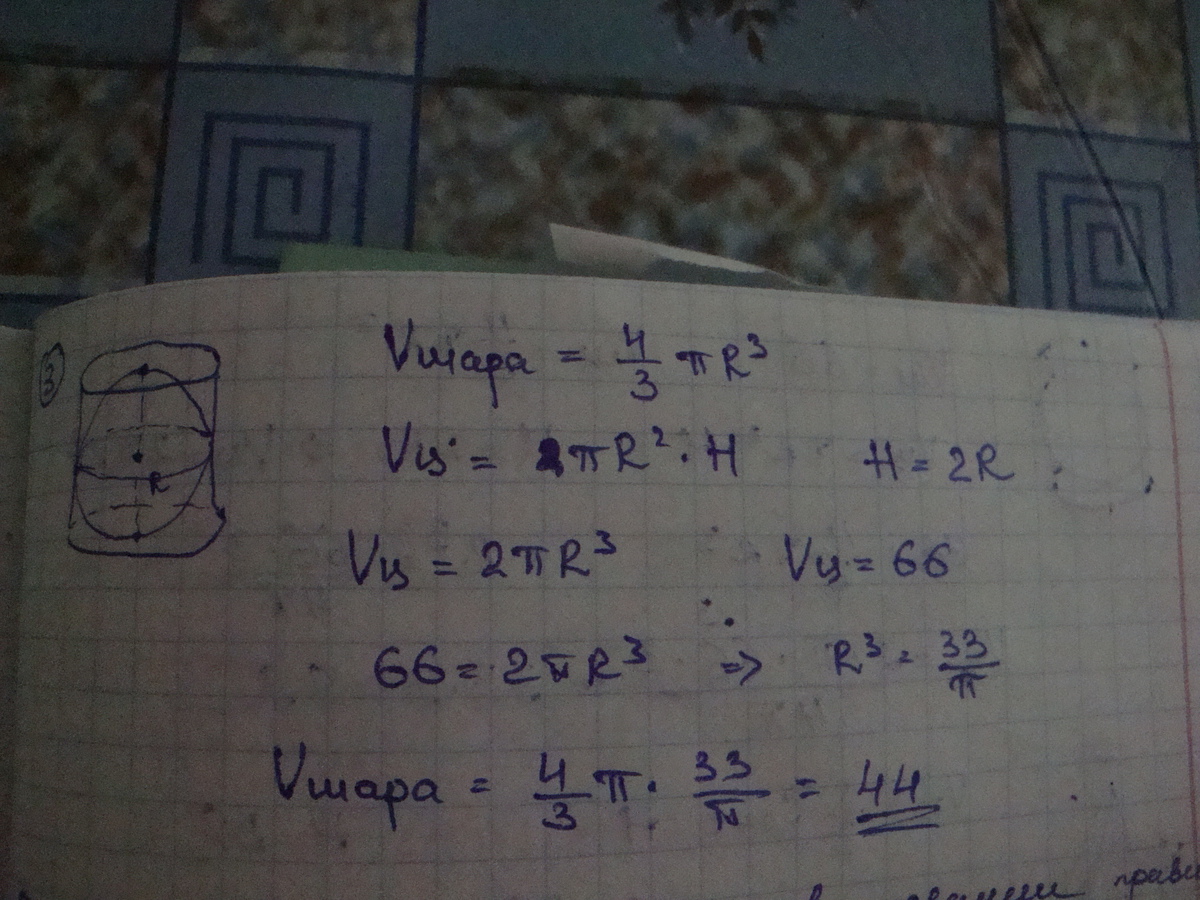 ③
Vшара = 4/3 πR³
Vц = πR² · H H = 2R
R
Vц = 2πR³ Vц = 66
66 = 2πR³ => R³ = 33/π
Vшара = 4/3 π · 33/π = 44